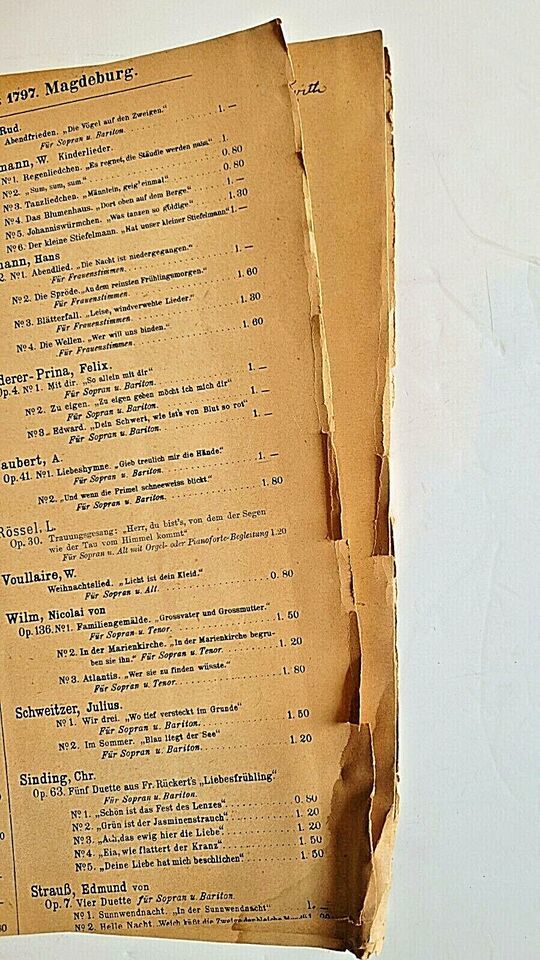 1797. Magdeburg.
Rud.
Abendfrieden. „Die Vögel auf den Zweigen.“ 1. —
Für Sopran u. Bariton.
mann, W. Kinderlieder.
Nº 1. Regenliedchen. „Es regnet, die Städtle werden nass.“ 1.
Nº 2. „Sum, sum, sum.“ 0. 80
Nº 3. Tanzliedchen. „Männlein, geig' einmal“ 0. 80
Nº 4. Das Blumenhaus. „Dort oben auf dem Berge.“ 1. —
Nº 5. Johanniswürmchen. „Was tanzen so goldige“ 1. 30
Nº 6. Der kleine Stiefelmann. „Hat unser kleiner Stiefelmann“ 1. —
mann, Hans
2. Nº 1. Abendlied. „Die Nacht ist niedergegangen.“ 1. —
Für Frauenstimmen.
Nº 2. Die Spröde. „An dem reinsten Frühlingsmorgen.“ 1. 60
Für Frauenstimmen.
Nº 3. Blätterfall. „Leise, windverwehte Lieder.“ 1. 30
Für Frauenstimmen.
Nº 4. Die Wellen. „Wer will uns binden.“ 1. 60
Für Frauenstimmen.
derer-Prina, Felix.
Op. 4. Nº 1. Mit dir. „So allein mit dir“ 1. —
Für Sopran u. Bariton.
Nº 2. Zu eigen. „Zu eigen geben möcht ich mich dir“ 1. —
Für Sopran u. Bariton.
Nº 3. Edward. „Dein Schwert, wie ist's von Blut so rot“ 1. —
Für Sopran u. Bariton.
aubert, A.
Op. 41. Nº 1. Liebeshymne. „Gieb treulich mir die Hände.“ 1. —
Für Sopran u. Bariton.
Nº 2. „Und wenn die Primel schneeweiss blickt.“ 1. 80
Für Sopran u. Bariton.
Rössel, L.
Op. 30. Trauungsgesang: „Herr, du bist's, von dem der Segen
wie der Tau vom Himmel kommt“
Für Sopran u. Alt mit Orgel- oder Pianoforte-Begleitung 1. 20
Voullaire, W.
Weihnachtslied. „Licht ist dein Kleid.“ 0. 80
Für Sopran u. Alt.
Wilm, Nicolai von
Op. 136. Nº 1. Familiengemälde. „Grossvater und Grossmutter.“
Für Sopran u. Tenor. 1. 50
Nº 2. In der Marienkirche. „In der Marienkirche begru-
ben sie ihn.“ Für Sopran u. Tenor. 1. 20
Nº 3. Atlantis. „Wer sie zu finden wüsste.“ 1. 80
Für Sopran u. Tenor.
Schweitzer, Julius.
Nº 1. Wir drei. „Wo tief versteckt im Grunde“
Für Sopran u. Bariton. 1. 50
Nº 2. Im Sommer. „Blau liegt der See“ 1. 20
Für Sopran u. Bariton.
Sinding, Chr.
Op. 63. Fünf Duette aus Fr. Rückert's „Liebesfrühling.“
Für Sopran u. Bariton.
Nº 1. „Schön ist das Fest des Lenzes“ 0. 80
Nº 2. „Grün ist der Jasminenstrauch“ 1. 20
Nº 3. „Ach, das ewig hier die Liebe“ 1. 20
Nº 4. „Eia, wie flattert der Kranz“ 1. 50
Nº 5. „Deine Liebe hat mich beschlichen“ 1. 50
Strauß, Edmund von
Op. 7. Vier Duette für Sopran u. Bariton.
Nº 1. Sunnwendnacht. „In der Sunnwendnacht“ 1. —
Nº 2. Helle Nacht. „Weich küßt die Zweige der bleiche